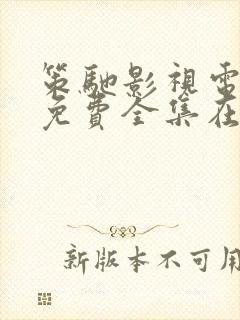 策馳影視電
免費全集在
新版本不可用